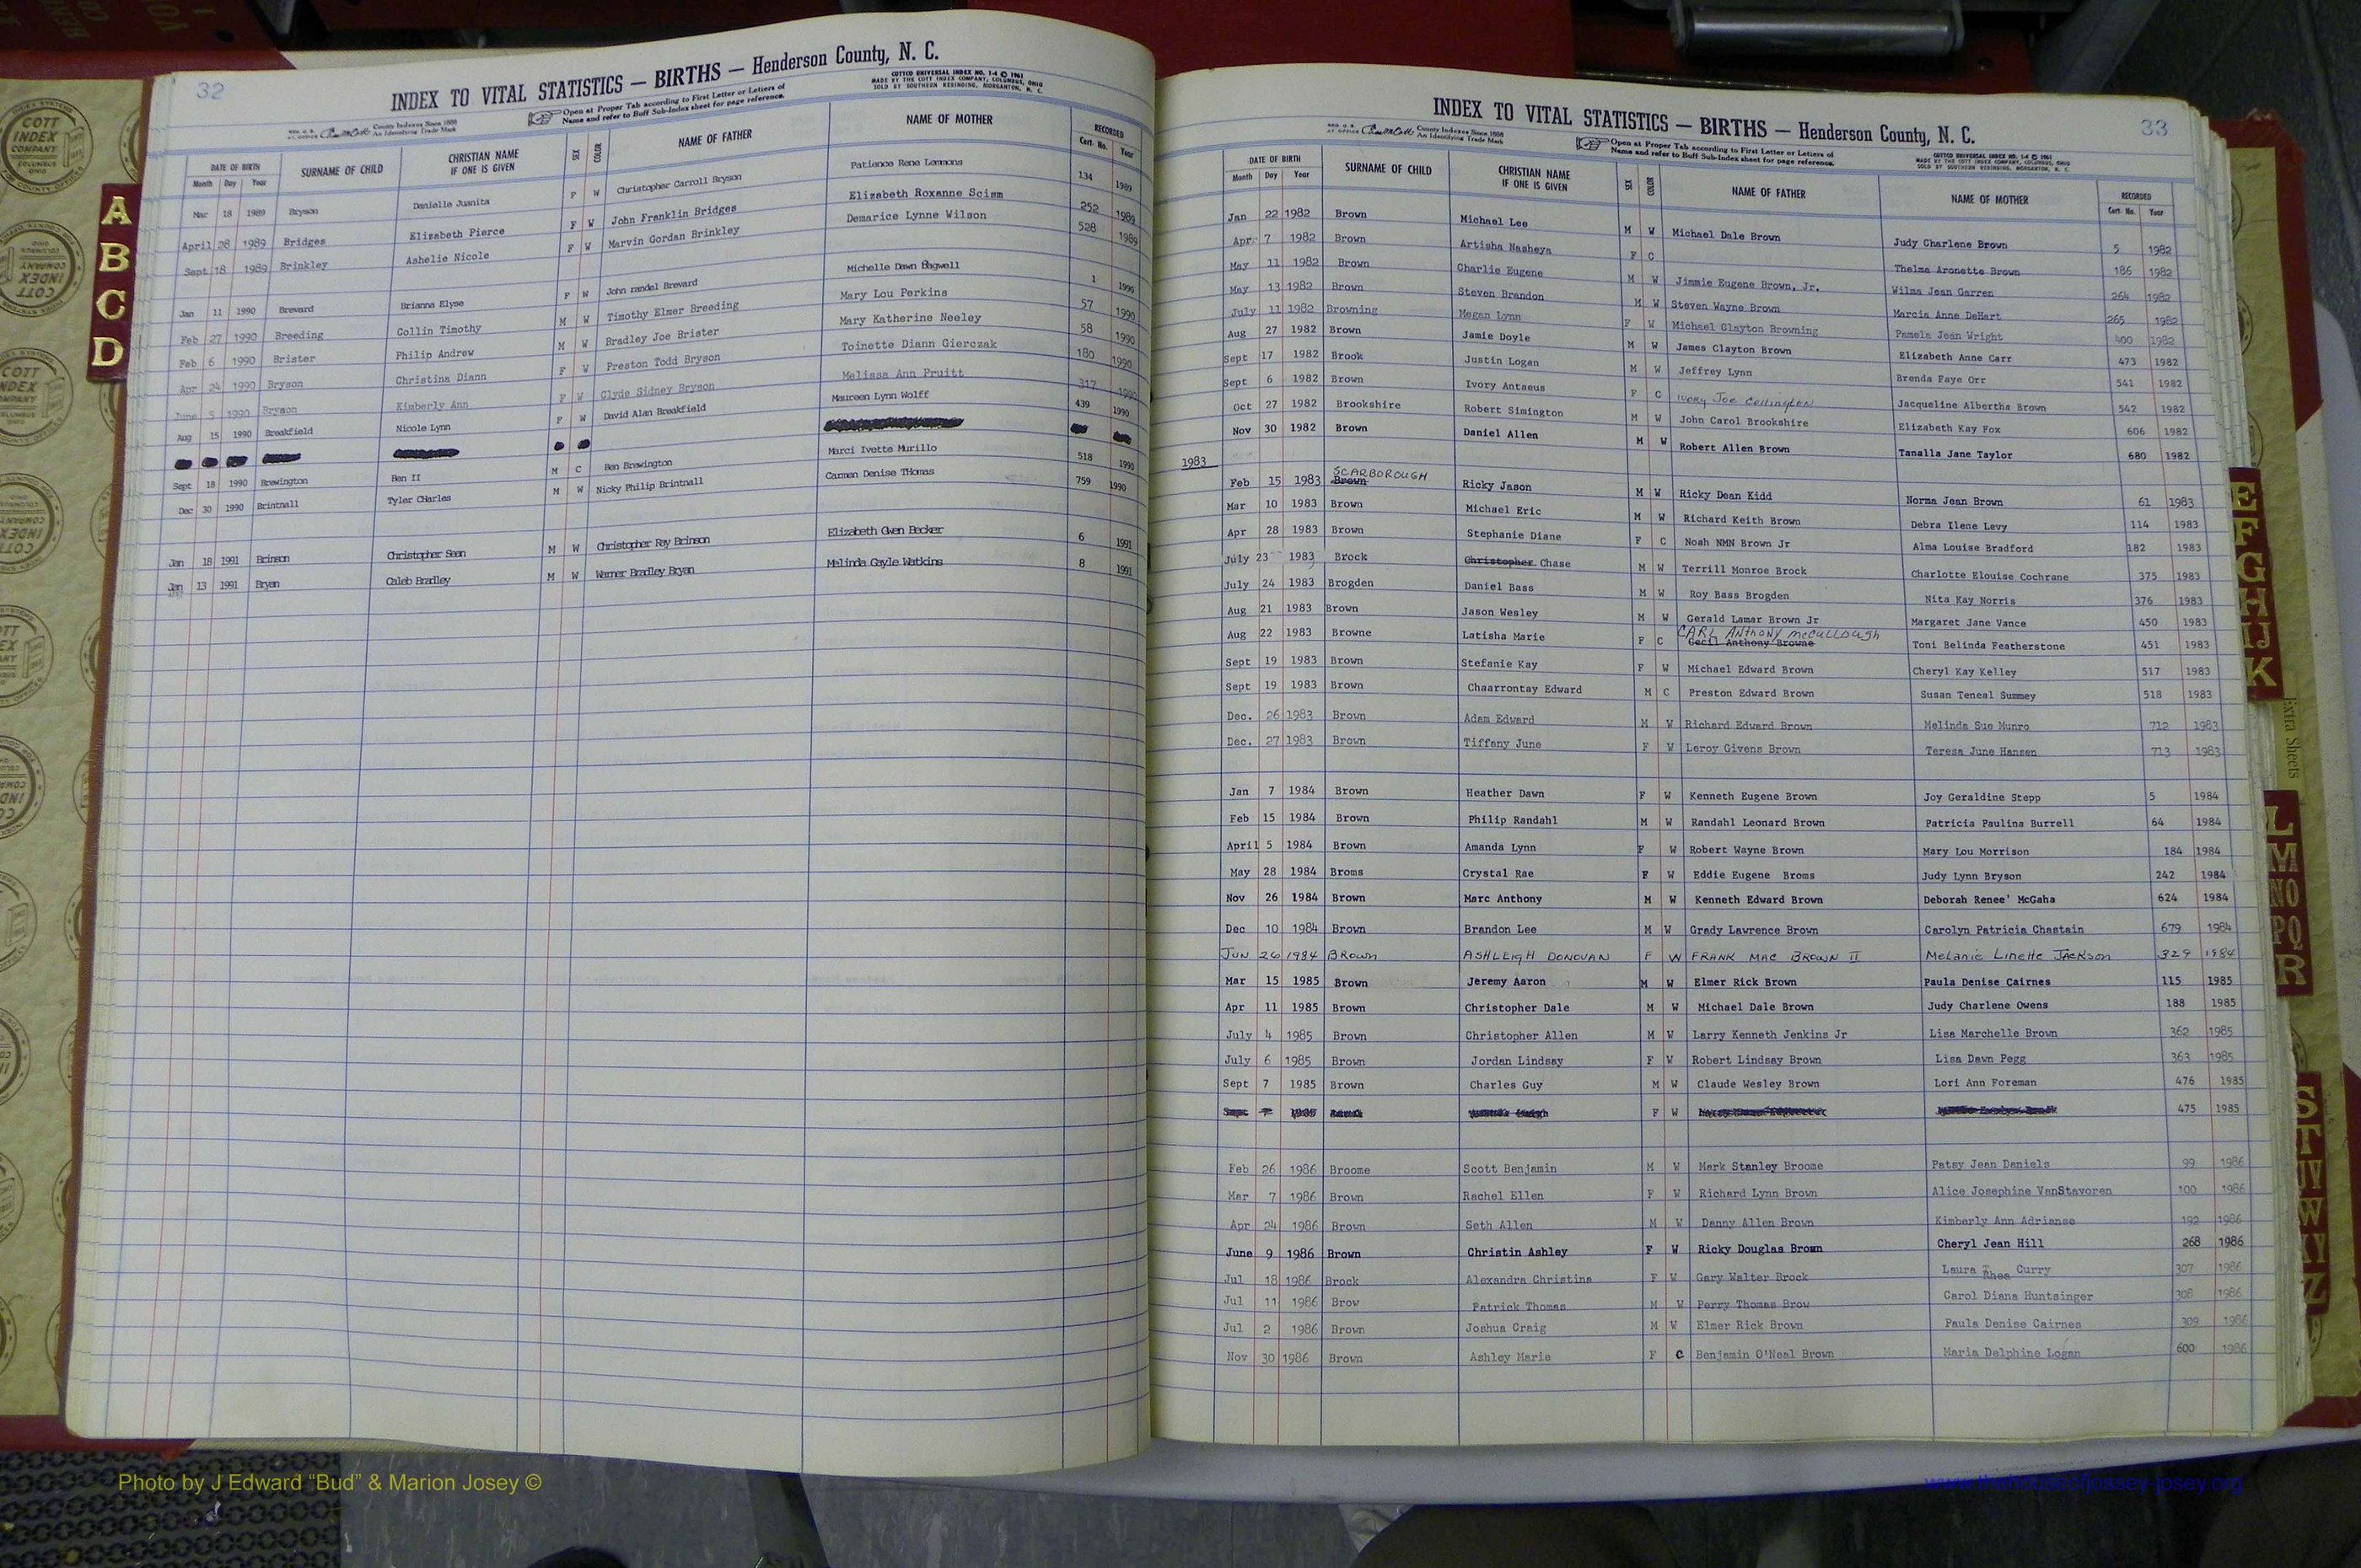 32
INDEX TO VITAL STATISTICS — BIRTHS — Henderson County, N. C.
COTTCO UNIVERSAL INDEX NO. 1-4 © 1961
MADE BY THE COTT INDEX COMPANY, COLUMBUS, OHIO
SOLD BY SOUTHERN REBINDING, MORGANTON, N. C.
County Indexes Since 1888
An Identifying Trade Mark
Open at Proper Tab according to First Letter or Letters of
Name and refer to Buff Sub-Index sheet for page reference.
DATE OF BIRTH SURNAME OF CHILD CHRISTIAN NAME IF ONE IS GIVEN SEX COLOR NAME OF FATHER NAME OF MOTHER RECORDED
Month Day Year Cert. No. Year
Mar 18 1989 Bryson Danielle Juanita F W Christopher Carroll Bryson Patience Rene Lemmons 134 1989
April 28 1989 Bridges Elizabeth Pierce F W John Franklin Bridges Elizabeth Roxanne Scism 252 1989
Sept 18 1989 Brinkley Ashelie Nicole F W Marvin Gordan Brinkley Demarice Lynne Wilson 528 1989
Jan 11 1990 Brevard Brianna Elyse F W John randel Brevard Michelle Dawn Bagwell 1 1990
Feb 27 1990 Breeding Collin Timothy M W Timothy Elmer Breeding Mary Lou Perkins 57 1990
Feb 6 1990 Brister Philip Andrew M W Bradley Joe Brister Mary Katherine Neeley 58 1990
Apr 24 1990 Bryson Christina Diann F W Preston Todd Bryson Toinette Diann Gierczak 180 1990
June 5 1990 Bryson Kimberly Ann F W Clyde Sidney Bryson Melissa Ann Pruitt 317 1990
Aug 15 1990 Breakfield Nicole Lynn F W David Alan Breakfield Maureen Lynn Wolff 439 1990
Sept 18 1990 Brewington Ben II M C Ben Brewington Marci Ivette Murillo 518 1990
Dec 30 1990 Brintnall Tyler CHarles M W Nicky Philip Brintnall Carmen Denise THomas 759 1990
Jan 18 1991 Brinson Christopher Sean M W Christopher Ray Brinson Elizabeth Gwen Becker 6 1991
Jan 13 1991 Bryan Caleb Bradley M W Warner Bradley Bryan Melinda Gayle Watkins 8 1991
A
B
C
D
33
INDEX TO VITAL STATISTICS — BIRTHS — Henderson County, N. C.
COTTCO UNIVERSAL INDEX NO. 1-4 © 1961
MADE BY THE COTT INDEX COMPANY, COLUMBUS, OHIO
SOLD BY SOUTHERN REBINDING, MORGANTON, N. C.
County Indexes Since 1888
An Identifying Trade Mark
Open at Proper Tab according to First Letter or Letters of
Name and refer to Buff Sub-Index sheet for page reference.
DATE OF BIRTH SURNAME OF CHILD CHRISTIAN NAME IF ONE IS GIVEN SEX COLOR NAME OF FATHER NAME OF MOTHER RECORDED
Month Day Year Cert. No. Year
Jan 22 1982 Brown Michael Lee M W Michael Dale Brown Judy Charlene Brown 5 1982
Apr 7 1982 Brown Artisha Nasheya F C Thelma Aronette Brown 186 1982
May 11 1982 Brown Charlie Eugene M W Jimmie Eugene Brown, Jr. Wilma Jean Garren 264 1982
May 13 1982 Brown Steven Brandon M W Steven Wayne Brown Marcia Anne DeHart 265 1982
July 11 1982 Browning Megan Lynn F W Michael Clayton Browning Pamela Jean Wright 400 1982
Aug 27 1982 Brown Jamie Doyle M W James Clayton Brown Elizabeth Anne Carr 473 1982
Sept 17 1982 Brook Justin Logan M W Jeffrey Lynn Brenda Faye Orr 541 1982
Sept 6 1982 Brown Ivory Antaeus F C Ivory Joe Collington Jacqueline Albertha Brown 542 1982
Oct 27 1982 Brookshire Robert Simington M W John Carol Brookshire Elizabeth Kay Fox 606 1982
Nov 30 1982 Brown Daniel Allen M W Robert Allen Brown Tanalla Jane Taylor 680 1982
1983
SCARBOROUGH
Feb 15 1983 Brown Ricky Jason M W Ricky Dean Kidd Norma Jean Brown 61 1983
Mar 10 1983 Brown Michael Eric M W Richard Keith Brown Debra Ilene Levy 114 1983
Apr 28 1983 Brown Stephanie Diane F C Noah NMN Brown Jr Alma Louise Bradford 182 1983
July 23 1983 Brock Christopher Chase M W Terrill Monroe Brock Charlotte Elouise Cochrane 375 1983
July 24 1983 Brogden Daniel Bass M W Roy Bass Brogden Nita Kay Norris 376 1983
Aug 21 1983 Brown Jason Wesley M W Gerald Lamar Brown Jr Margaret Jane Vance 450 1983
CARL ANthony McCULLOugh
Aug 22 1983 Browne Latisha Marie F C Cecil Anthony Browne Toni Belinda Featherstone 451 1983
Sept 19 1983 Brown Stefanie Kay F W Michael Edward Brown Cheryl Kay Kelley 517 1983
Sept 19 1983 Brown Chaarrontay Edward M C Preston Edward Brown Susan Teneal Summey 518 1983
Dec. 26 1983 Brown Adam Edward M W Richard Edward Brown Melinda Sue Munro 712 1983
Dec. 27 1983 Brown Tiffany June F W Leroy Givens Brown Teresa June Hansen 713 1983
Jan 7 1984 Brown Heather Dawn F W Kenneth Eugene Brown Joy Geraldine Stepp 5 1984
Feb 15 1984 Brown Philip Randahl M W Randahl Leonard Brown Patricia Paulina Burrell 64 1984
April 5 1984 Brown Amanda Lynn F W Robert Wayne Brown Mary Lou Morrison 184 1984
May 28 1984 Broms Crystal Rae F W Eddie Eugene Broms Judy Lynn Bryson 242 1984
Nov 26 1984 Brown Marc Anthony M W Kenneth Edward Brown Deborah Renee' McGaha 624 1984
Dec 10 1984 Brown Brandon Lee M W Grady Lawrence Brown Carolyn Patricia Chastain 679 1984
JUN 26 1984 BROWN ASHLEIGH DONOVAN F W FRANK MAC BROWN II Melanie Linette JACKSON 329 1984
Mar 15 1985 Brown Jeremy Aaron M W Elmer Rick Brown Paula Denise Cairnes 115 1985
Apr 11 1985 Brown Christopher Dale M W Michael Dale Brown Judy Charlene Owens 188 1985
July 4 1985 Brown Christopher Allen M W Larry Kenneth Jenkins Jr Lisa Marchelle Brown 362 1985
July 6 1985 Brown Jordan Lindsay F W Robert Lindsay Brown Lisa Dawn Pegg 363 1985
Sept 7 1985 Brown Charles Guy M W Claude Wesley Brown Lori Ann Foreman 476 1985
Sept 7 1985 F W 475 1985
Feb 26 1986 Broome Scott Benjamin M W Mark Stanley Broome Patsy Jean Daniels 99 1986
Mar 7 1986 Brown Rachel Ellen F W Richard Lynn Brown Alice Josephine VanStavoren 100 1986
Apr 24 1986 Brown Seth Allen M W Danny Allen Brown Kimberly Ann Adrianse 192 1986
June 9 1986 Brown Christin Ashley F W Ricky Douglas Brown Cheryl Jean Hill 268 1986
Jul 18 1986 Brock Alexandra Christina F W Gary Walter Brock Laura Rhea Curry 307 1986
Jul 11 1986 Brow Patrick Thomas M W Perry Thomas Brow Carol Diana Huntsinger 308 1986
Jul 2 1986 Brown Joshua Craig M W Elmer Rick Brown Paula Denise Cairnes 309 1986
Nov 30 1986 Brown Ashley Marie F C Benjamin O'Neal Brown Maria Delphine Logan 600 1986
E
F
G
H
IJ
K
Extra Sheets
L
M
NO
PQ
R
S
T
UV
W
XY
Z
COTT
INDEX
COMPANY
COLUMBUS
OHIO
Photo by J Edward “Bud” & Marion Josey ©
www.thehouseofjossey-josey.org